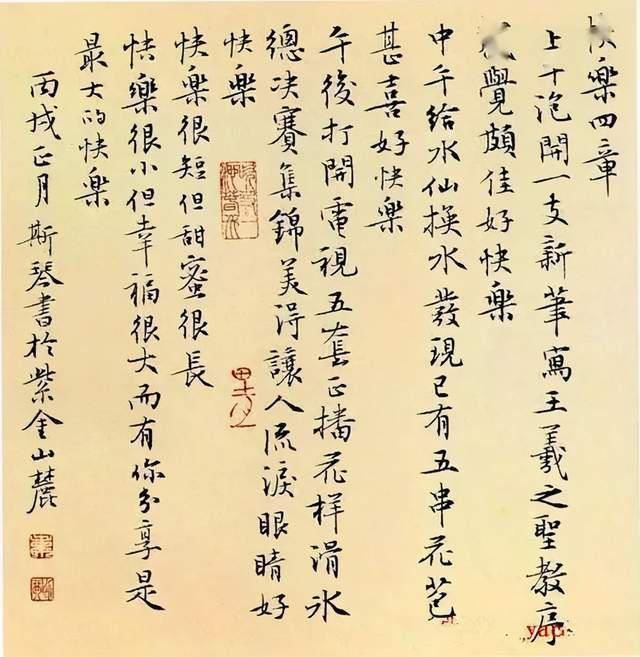 快樂四章
上午泡開一支新筆寫王羲之聖教序
覺頗佳好快樂
中午給水仙換水發現已有五串花苞
甚喜好快樂
午後打開電視五套正播花樣滑冰
總决賽集錦美得讓人流淚眼睛好
快樂
快樂很短但甜蜜很長
快樂很小但幸福很大而有你分享是
最大的快樂
丙戌正月斯琴書於紫金山麓